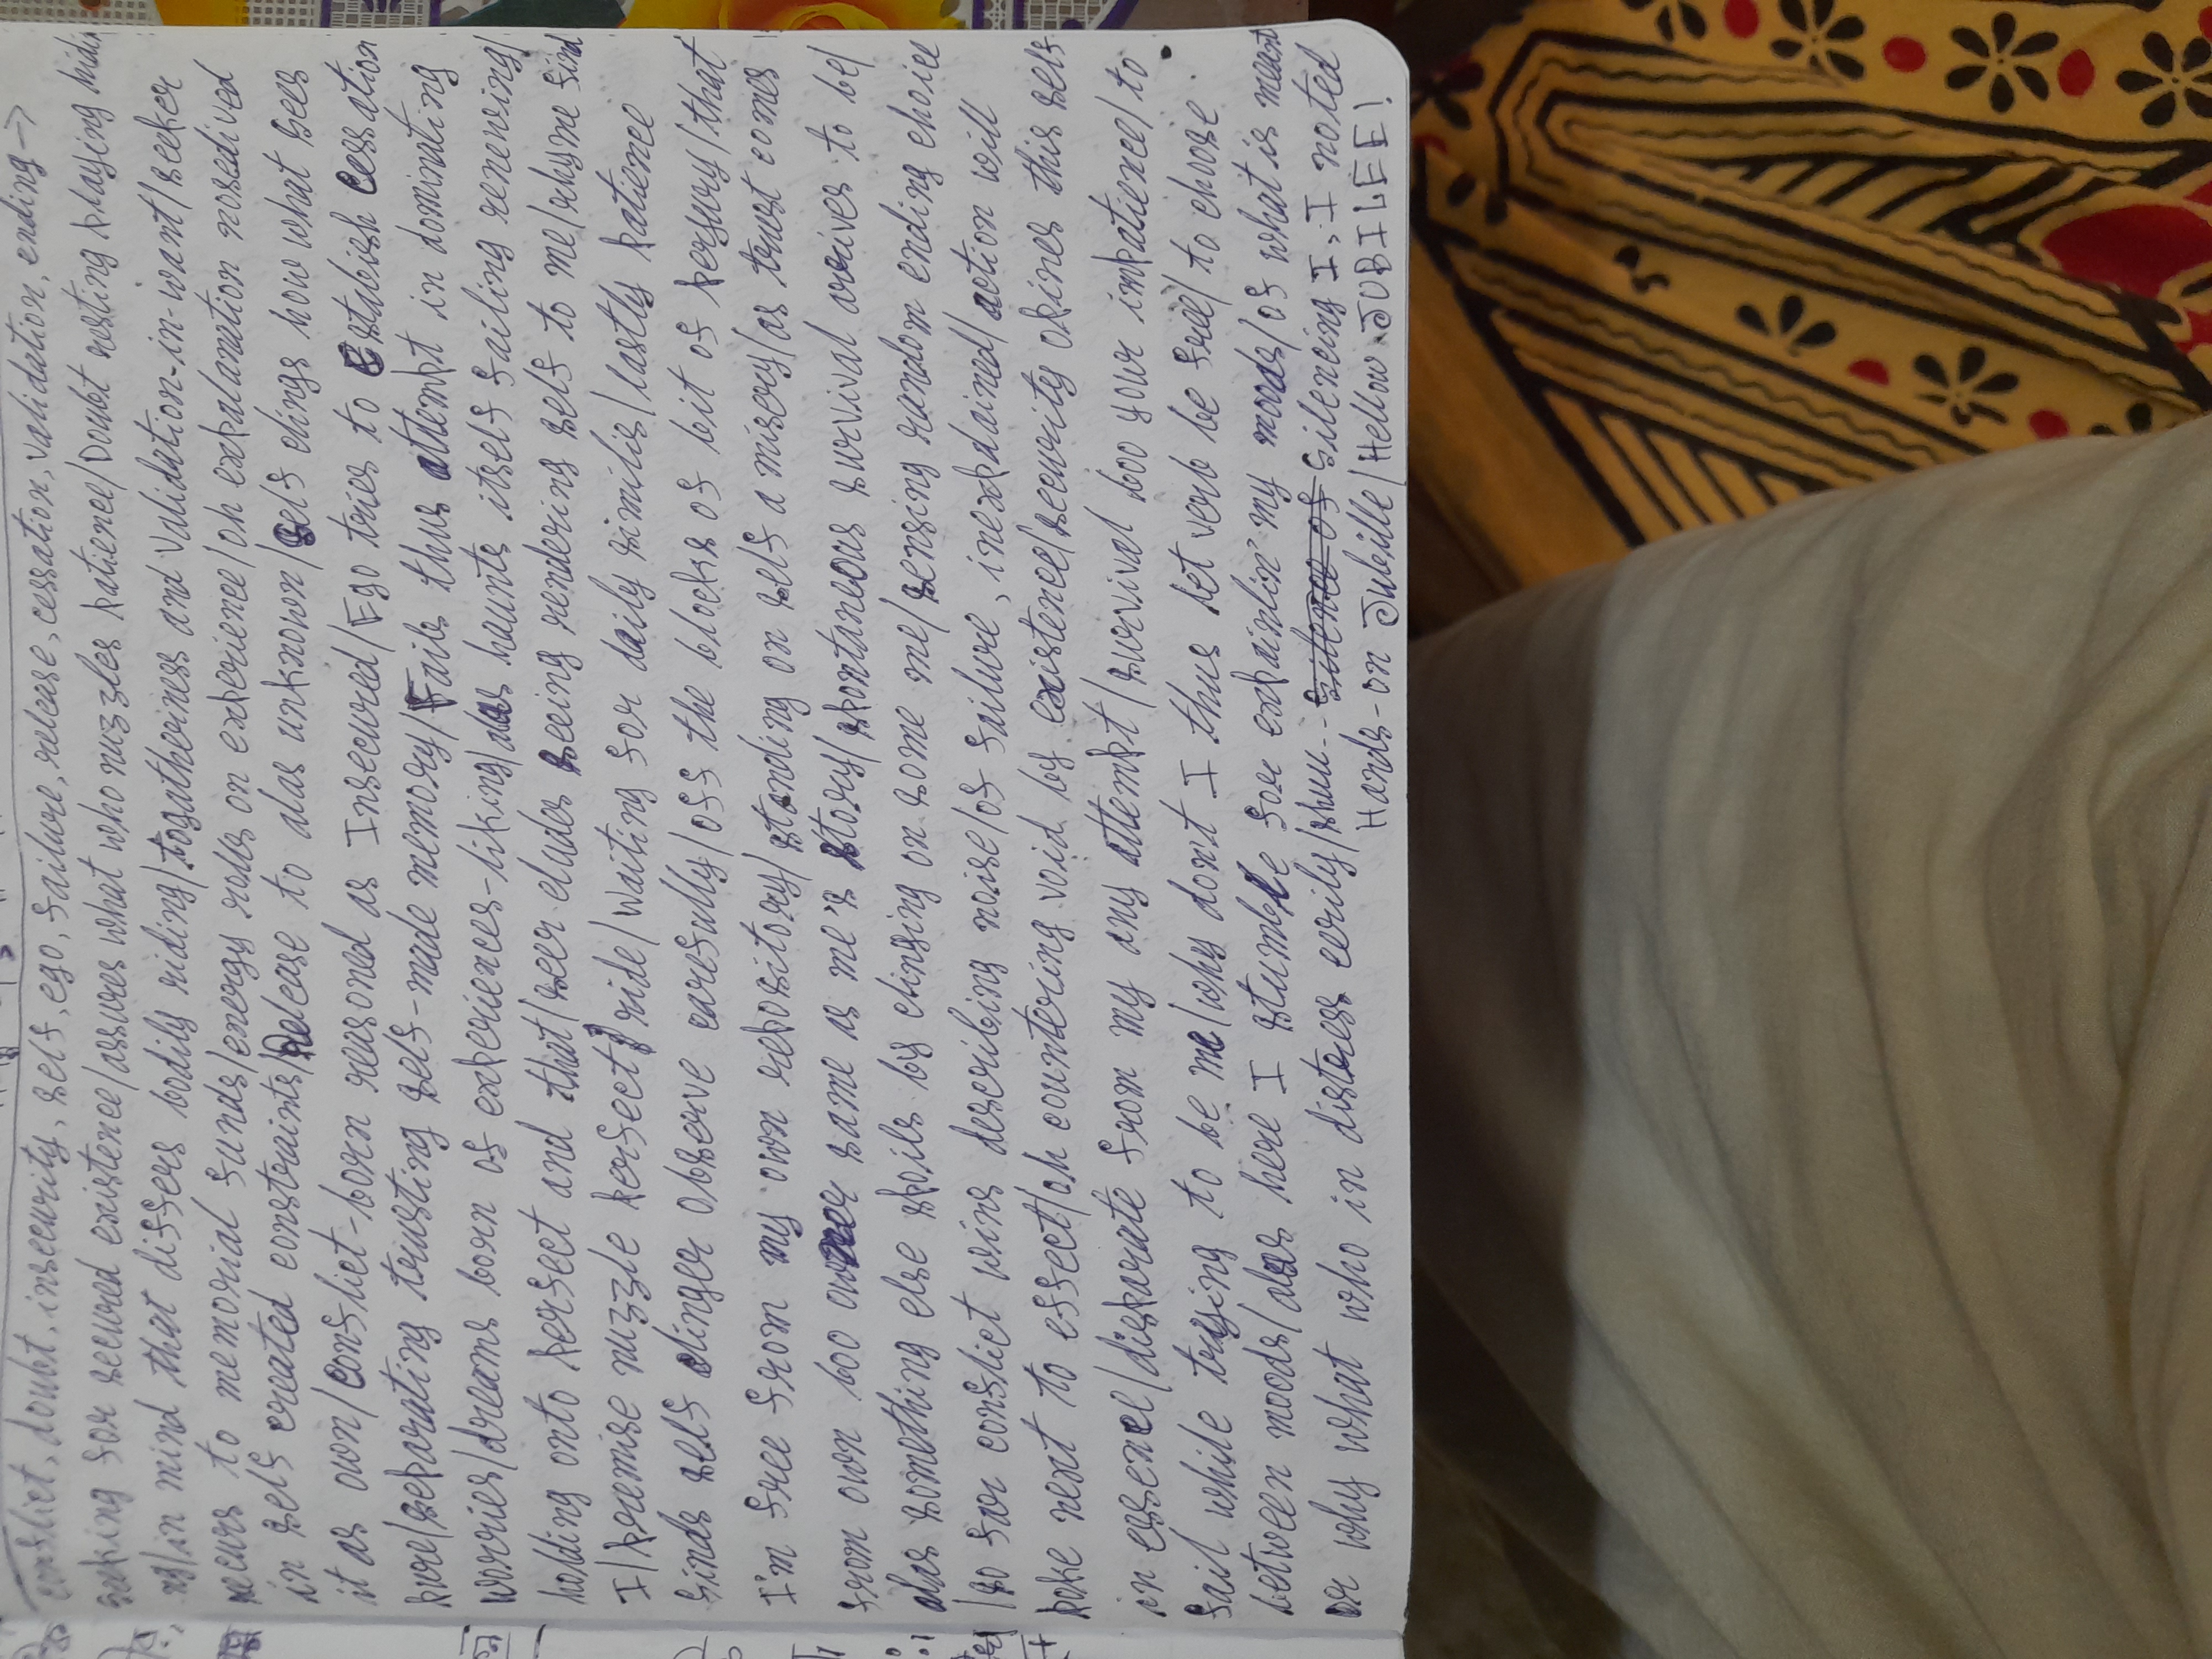 conflict, doubt, insecurity, self, ego, failure, release, cessation, validation, ending →
seeking for secured existence/assures what who nuzzles patience/Doubt resting playing hidi
ng/in mind that differs bodily riding/togatherness and validation-in-want/seeker
recurs to memorial funds/energy rolls on experience/oh expalanation nosedived
in self created constraints/Release to alas unknown/self clings how what sees
it as own/conflict-born reasoned as Insecured/Ego tries to Establish cessation
pure/separating trusting self-made memory/Fails thus attempt in dominating
worries/dreams born of experiences-liking/alas haunts itself failing renewing/
holding onto perfect and that/seer eludes seeing rendering self to me/rhyme find
I/premise nuzzle perfect ride/Waiting for daily similis/lastly patience
finds self clinger observe carefully/off the blocks of bit of perjury/that
I'm free from my own repository/standing on self a misery/as trust comes
from own boo owner same as me's story/spontaneous survival arrives to be/
alas something else spoils by clinging on some me/sensing random ending choice
/so far conflict wins describing noise/of failure, inexplained/action will
poke next to effect/oh countering void by existence/security opines this self
in essence/disparate from my any attempt/survival boo your impatience/to
fail while trying to be me/why don't I thus let verb be free/to choose
between moods/alas here I stumble for expainlin' my moods/of what is meant
or why what who in distress eerily/shuu.. Silence of Silencing I, I noted
Hands-on Jubille/Hellow JUBILEE!